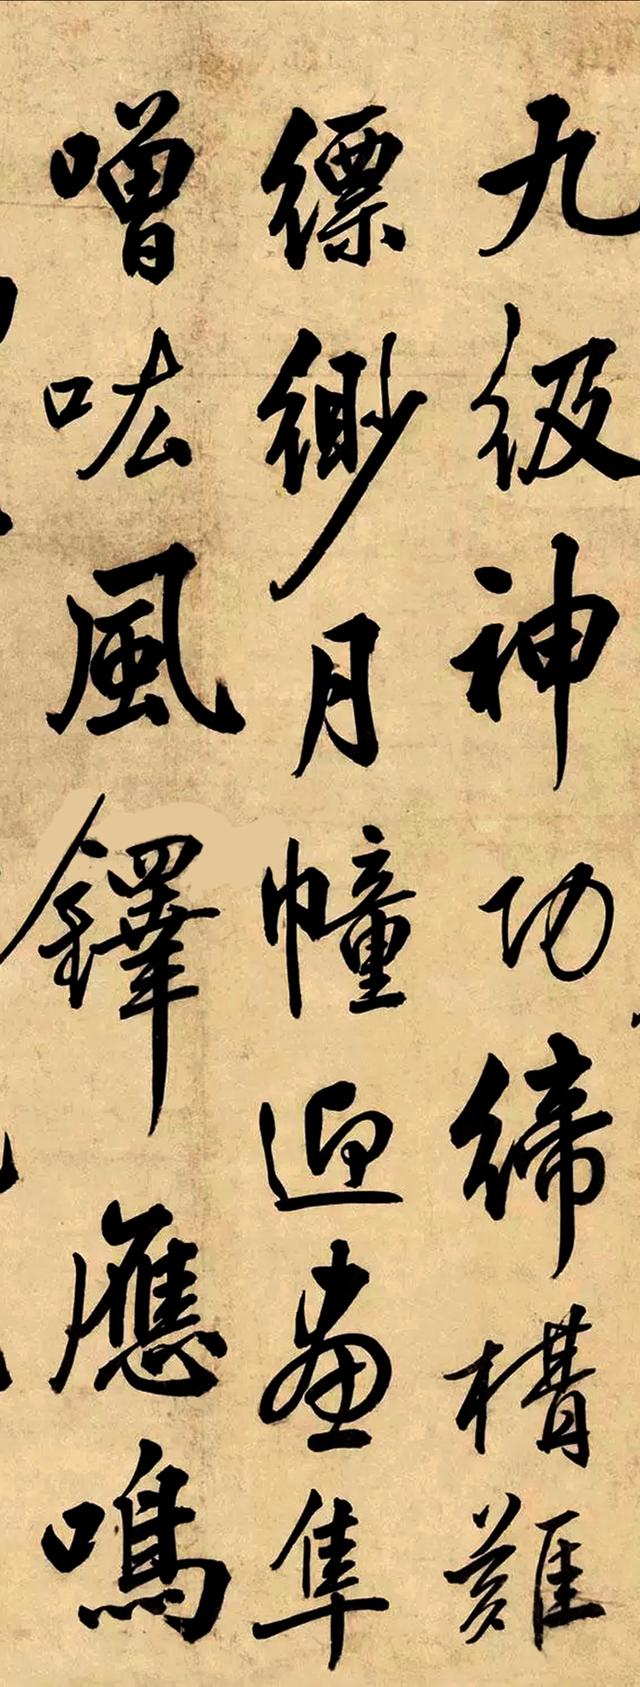 九级神功締構難
縹緲月幢迎畫隼
噌吰風鐸應鳴